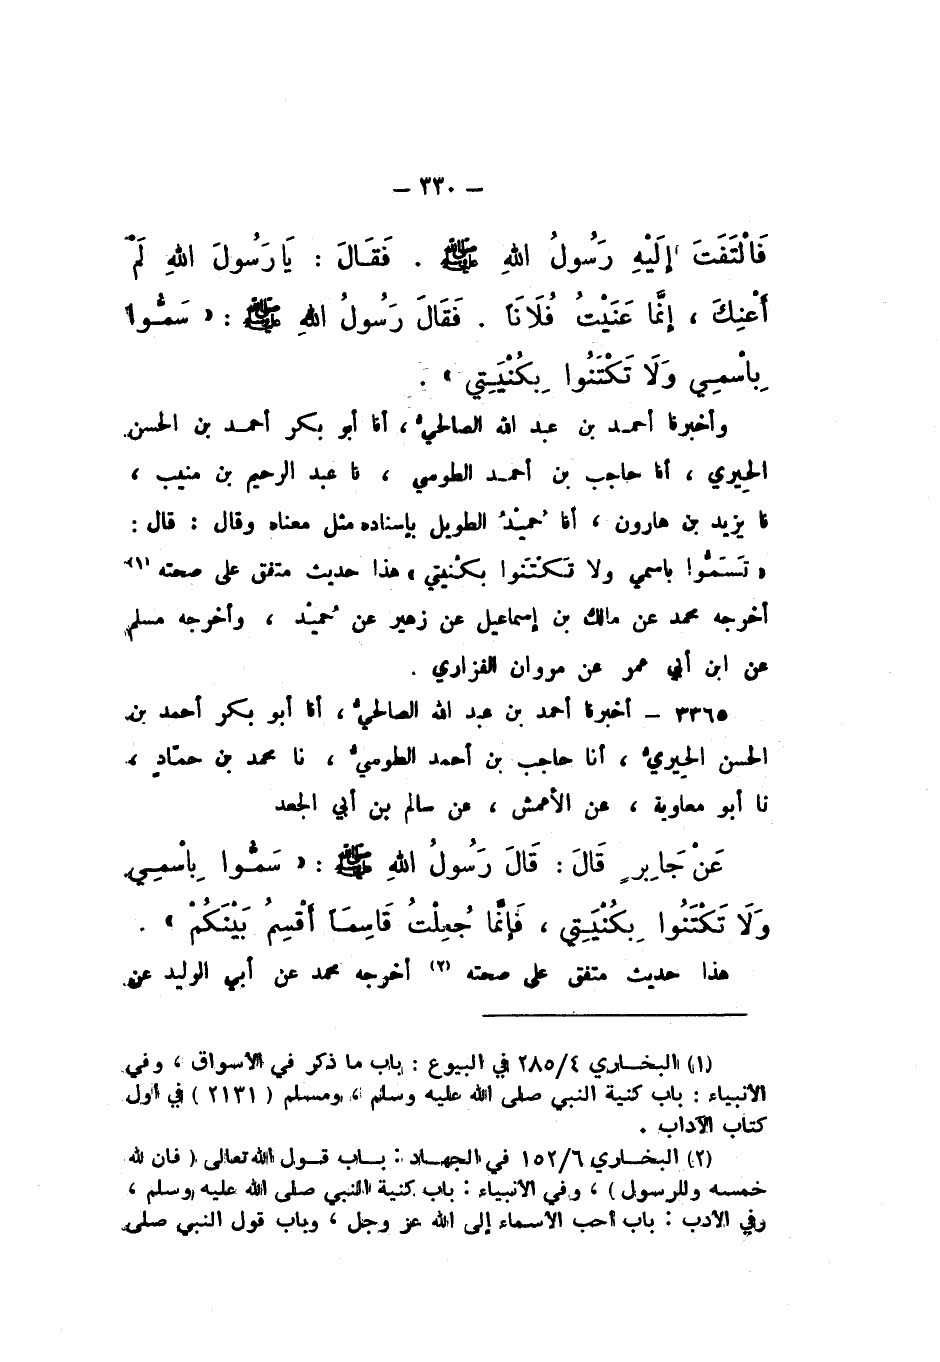 – ٣٣٠ –
فَالْتَفَتَ إِلَيْهِ رَسُولُ اللهِ ﷺ . فَقَالَ : يَارَسُولَ اللهِ لَمْ
أَعْنِكَ ، إِنَّمَا عَنَيْتُ فُلَانَاً . فَقَالَ رَسُولُ اللهِ ﷺ : « سَمُّوا
بِاسْمِي وَلَا تَكْتَنُوا بِكُنْيَتِي » .
وأخبرنا أحمد بن عبد الله الصالحيُّ ، أنا أبو بكر أحمد بن الحسن
الحيري ، أنا حاجب بن أحمد الطوسي ، نا عبد الرحيم بن منيب ،
نا يزيد بن هارون ، أنا حُمَيْدُ الطويل بإسناده مثل معناه وقال : قال :
« تَسَمُّوا باسمي ولا تَكْتَنُوا بكُنيتي » هذا حديث متفق على صحته (١)
أخرجه محمد عن مالك بن إسماعيل عن زهير عن حُمَيْد ، وأخرجه مسلم
عن ابن أبي عمر عن مروان الفزاري .
٣٣٦٥ – أخبرنا أحمد بن عبد الله الصالحيُّ ، أنا أبو بكر أحمد بن
الحسن الحيريُّ ، أنا حاجب بن أحمد الطوسيُّ ، نا محمد بن حمّادٍ ،
نا أبو معاوية ، عن الأعمش ، عن سالم بن أبي الجعد
عَنْ جَابِرٍ قَالَ : قَالَ رَسُولُ اللهِ ﷺ : « سَمُّوا بِاسْمِي
وَلَا تَكْتَنُوا بِكُنْيَتِي ، فَإِنَّمَا جُعِلْتُ قَاسِمَاً أَقْسِمُ بَيْنَكُمْ » .
هذا حديث متفق على صحته (٢) أخرجه محمد عن أبي الوليد عن
(١) البخاري ٢٨٥/٤ في البيوع : باب ما ذكر في الأسواق ، وفي
الأنبياء : باب كنية النبي صلى الله عليه وسلم ، ومسلم ( ٢١٣١ ) في أول
كتاب الآداب .
(٢) البخاري ١٥٢/٦ في الجهاد : باب قول الله تعالى ( فان لله
خمسه وللرسول ) ، وفي الأنبياء : باب كنية النبي صلى الله عليه وسلم ،
وفي الأدب : باب أحب الأسماء إلى الله عز وجل ، وباب قول النبي صلى